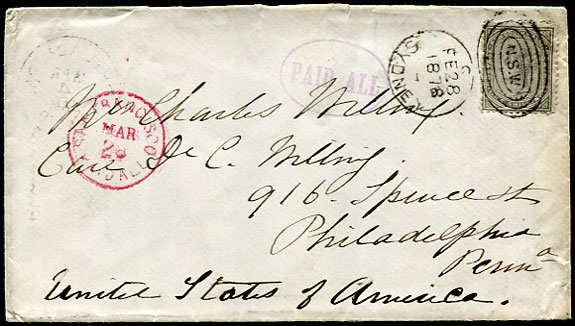 PAID ALL
SYDNEY
FE 28
1878
N.S.W.
SAN FRANCISCO
MAR
PAID ALL
Charles
Care Dr C.
916. Spruce St
Philadelphia
Penna
United States of America.